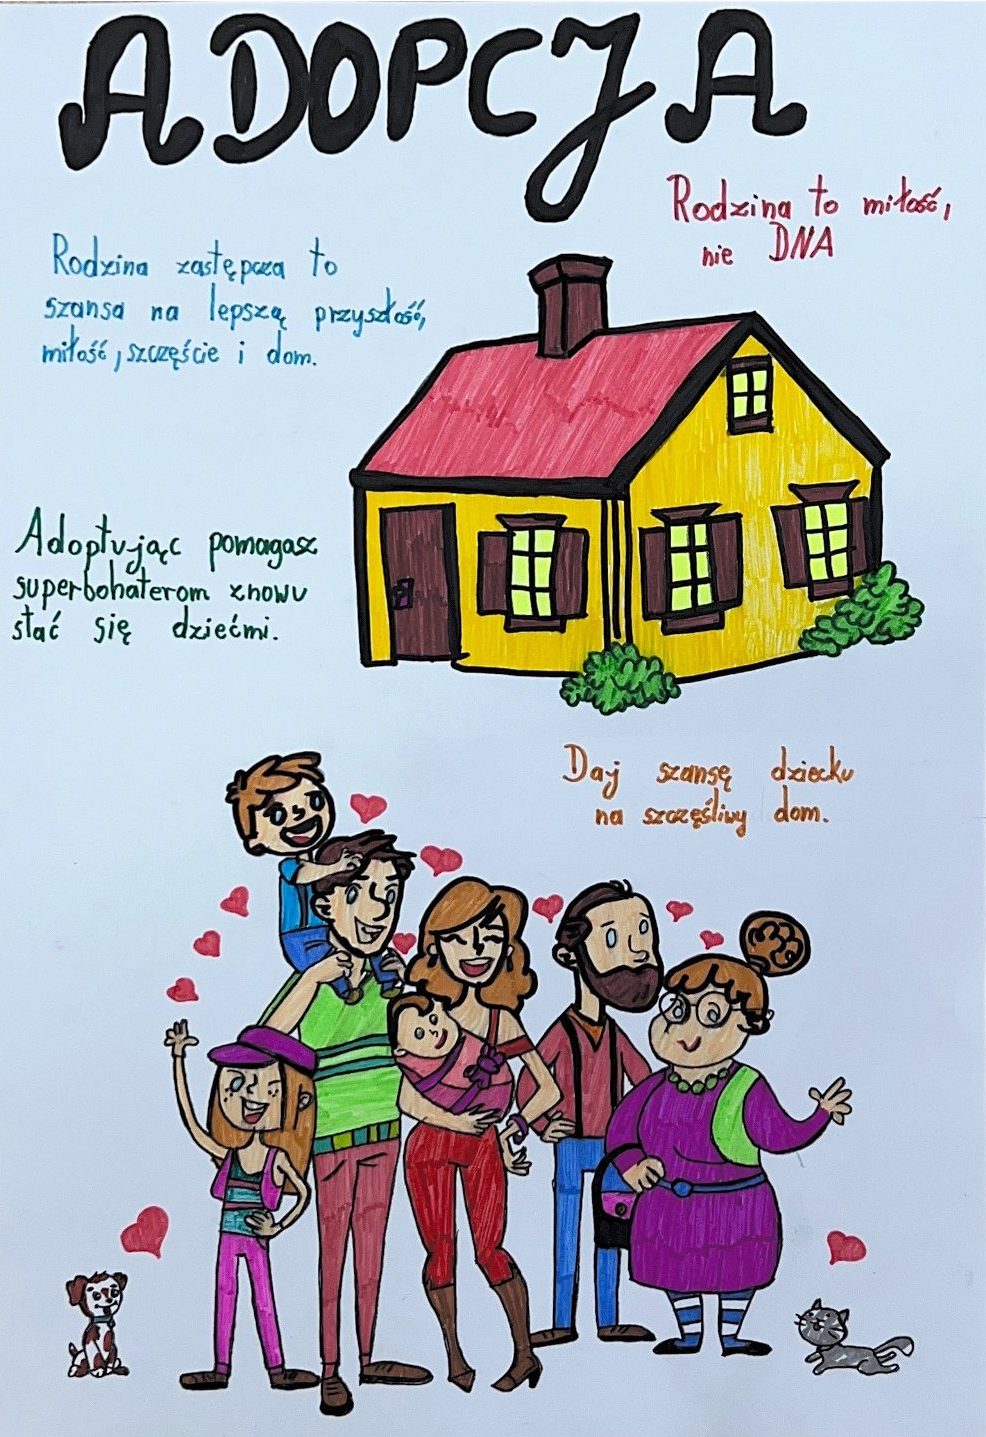 ADOPCJA
Rodzina to miłość,
nie DNA
Rodzina zastępcza to
szansa na lepszą przyszłość,
miłość, szczęście i dom.
Adoptując pomagasz
superbohaterom znowu
stać się dziećmi.
Daj szansę dziecku
na szczęśliwy dom.